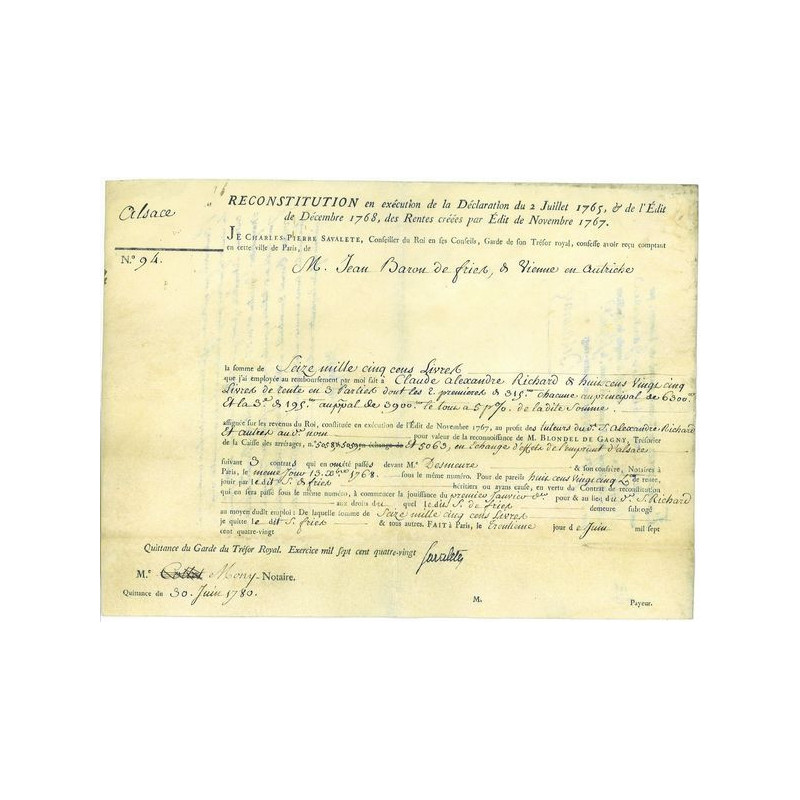 Alsace
RECONSTITUTION en exécution de la Déclaration du 2 Juillet 1765, & de l'Édit
de Décembre 1768, des Rentes créées par Édit de Novembre 1767.
N.º 94.
JE CHARLES-PIERRE SAVALETE, Conseiller du Roi en ses Conseils, Garde de son Trésor royal, confesse avoir reçu comptant
en cette ville de Paris, de
M. Jean Baron de fries, de Vienne en autriche
la somme de Seize mille cinq cens Livres
que j'ai employée au remboursement par moi fait à Claude alexandre Richard de huit cens vingt cinq
Livres de rente en 3 Parties dont les 2 premieres de 315.tt chacune au principal de 6300.tt
Et la 3.e de 195.tt au p.pal de 3900.tt le tout a 5 p% de la dite Somme.
assignée sur les revenus du Roi, constituée en exécution de l'Édit de Novembre 1767, au profit des tuteurs du d. S. alexandre Richard
Et autres au d. nom pour valeur de la reconnoissance de M. BLONDEL DE GAGNY, Trésorier
de la Caisse des arrérages, n.º 5058 5059 en échange de Et 5063, en Echange d'effets de l'emprunt d'alsace
suivant 3 contrats qui en ont été passés devant M.e Desmeure & son confrère, Notaires à
Paris, le meme Jour 13. Xbre 1768. sous le même numéro. Pour de pareils huit cens Vingt cinq L. de rente,
jour par le dit S. de fries héritiers ou ayans cause, en vertu du Contrat de reconstitution
qui en sera passé sous le même numéro, à commencer la jouissance du premier Janvier d.er pour & au lieu du d. S. Richard
aux droits du quel le dit S. de fries demeure subrogé
au moyen dudit emploi: De laquelle somme de Seize mille cinq cens Livres
je quitte le dit S. fries & tous autres. FAIT à Paris, le trentieme jour de Juin mil sept
cent quatre-vingt
Quittance du Garde du Trésor Royal. Exercice mil sept cent quatre-vingt
Savalete
M.e Collet Mony Notaire.
Quittance du 30. Juin 1780.
M. Payeur.